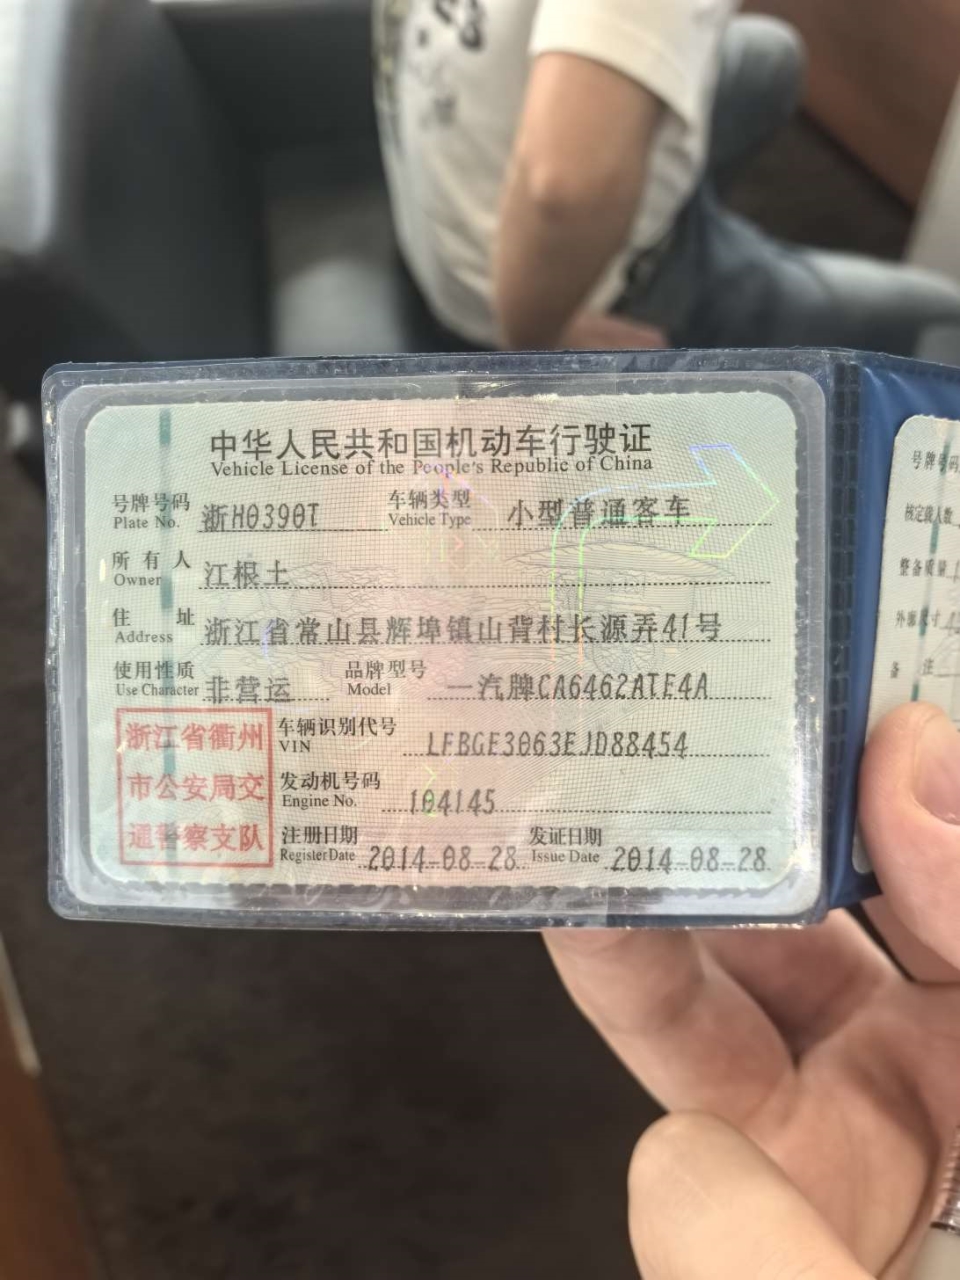 中华人民共和国机动车行驶证
Vehicle License of the People's Republic of China
号牌号码 浙H0390T 车辆类型 小型普通客车
Plate No. Vehicle Type
所有人 江根土
Owner
住址 浙江省常山县辉埠镇山背村长源弄41号
Address
使用性质 非营运 品牌型号 一汽牌CA6462ATE4A
Use Character Model
浙江省衢州
市公安局交
通警察支队
车辆识别代号 LFBGE3063EJD88454
VIN
发动机号码 104145
Engine No.
注册日期 2014-08-28 发证日期 2014-08-28
Register Date Issue Date
号牌号码
核定载人数
整备质量
外廓尺寸
备注